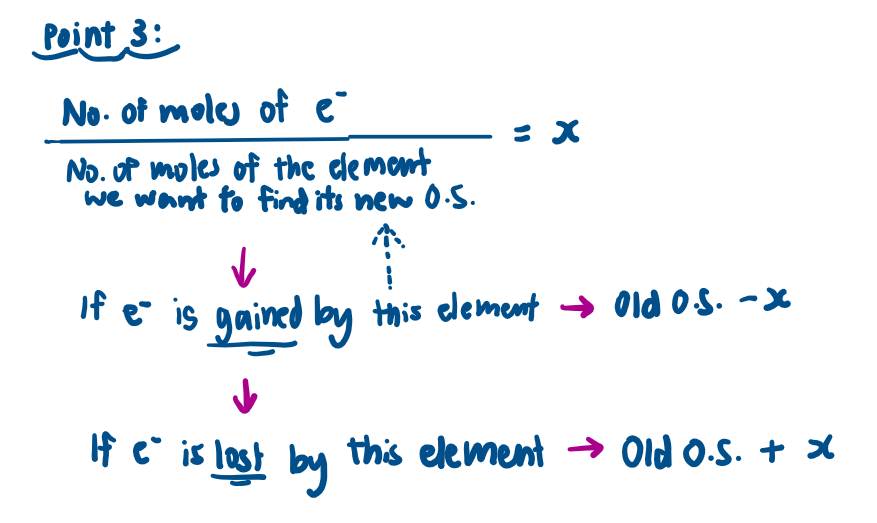 Point 3:
No. of moles of e⁻
= x
No. of moles of the element
we want to find its new O.S.
If e⁻ is gained by this element → Old O.S. - x
If e⁻ is lost by this element → Old O.S. + x